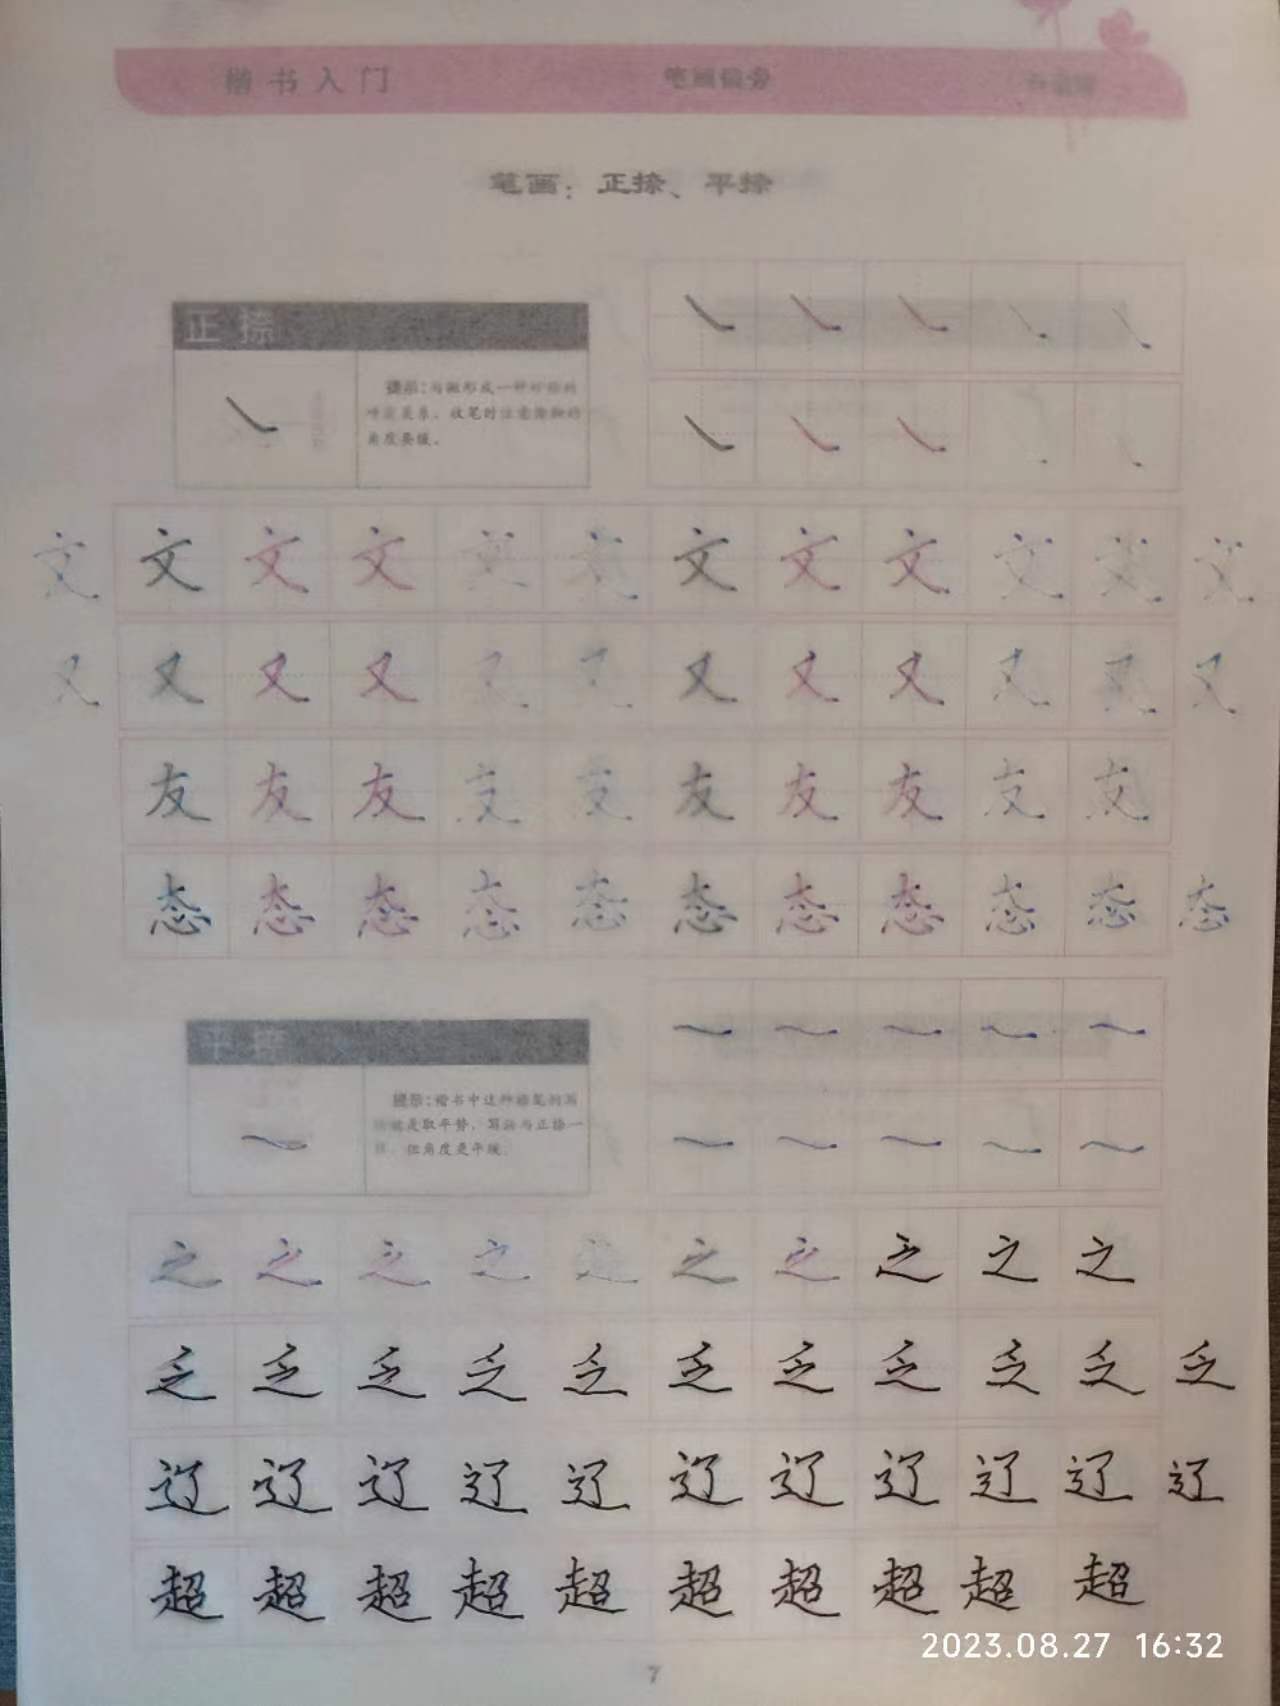 楷书入门 笔画偏旁
笔画：正捺、平捺
正捺
提示：与撇形成一种对称的
呼应关系，收笔时注意捺脚的
角度要缓。
文 文 文 文 文 文 文 文 文 文 文 文
又 又 又 又 又 又 又 又 又 又 又 又
友 友 友 友 友 友 友 友 友 友
态 态 态 态 态 态 态 态 态 态 态
平捺
提示：楷书中这种捺笔的写
法就是取平势，写法与正捺一
样，但角度更平缓。
之 之 之 之 之 之 之 之 之 之
乏 乏 乏 乏 乏 乏 乏 乏 乏 乏 乏
辽 辽 辽 辽 辽 辽 辽 辽 辽 辽 辽
超 超 超 超 超 超 超 超 超 超
2023.08.27 16:32
7